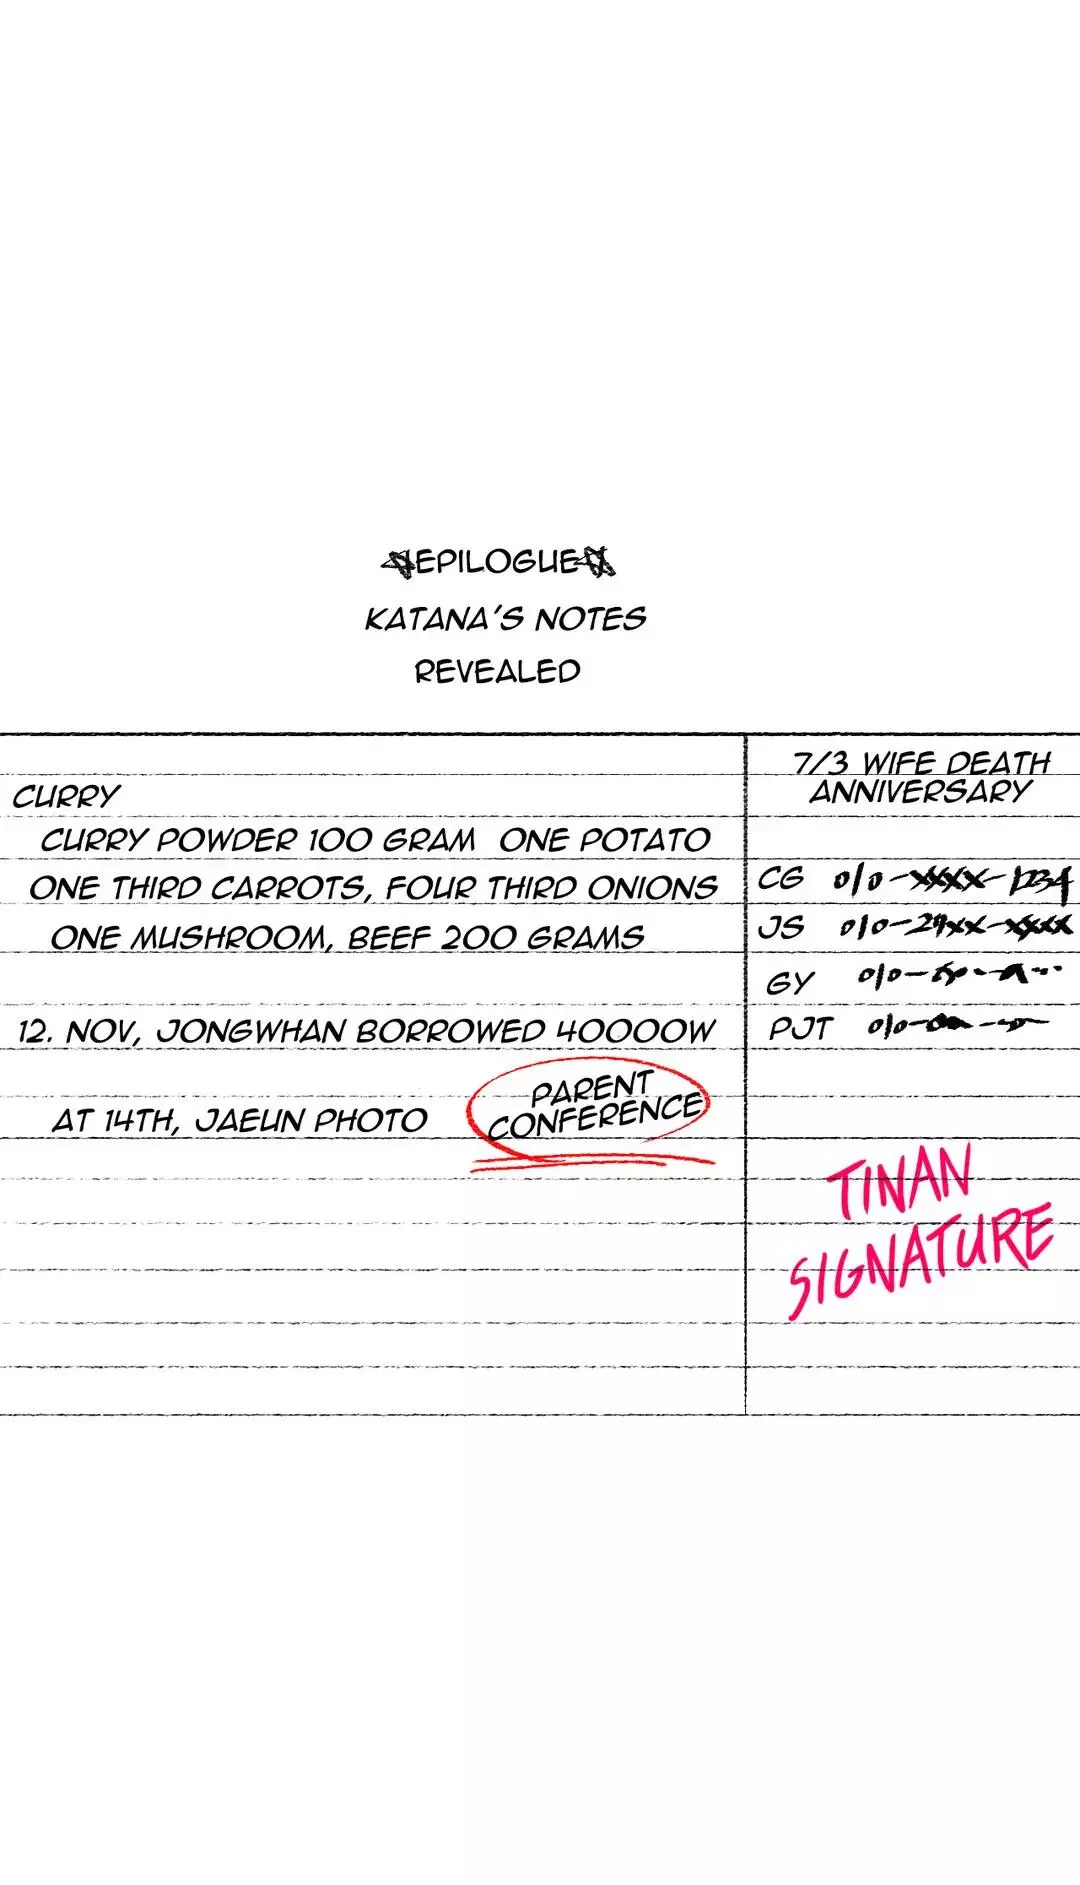 EPILOGUE
KATANA'S NOTES
REVEALED
7/3 WIFE DEATH
ANNIVERSARY
CURRY
CURRY POWDER 100 GRAM ONE POTATO
ONE THIRD CARROTS, FOUR THIRD ONIONS
ONE MUSHROOM, BEEF 200 GRAMS
12. NOV, JONGWHAN BORROWED 40000W
AT 14TH, JAEUN PHOTO
PARENT
CONFERENCE
CG 010-XXXX-1234
JS 010-29XX-XXXX
GY 010-
PJT 010-
TINAN
SIGNATURE